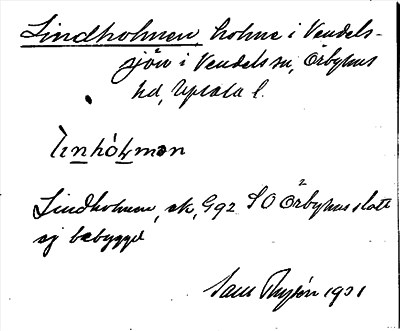 Lindholmen, holme i Vendels-
sjön i Vendels sn, Örbyhus
hd, Upsala l.
Linhólmən
Lindholmen, ek, 992 SO Örbyhus slott
ej bebyggd
1931